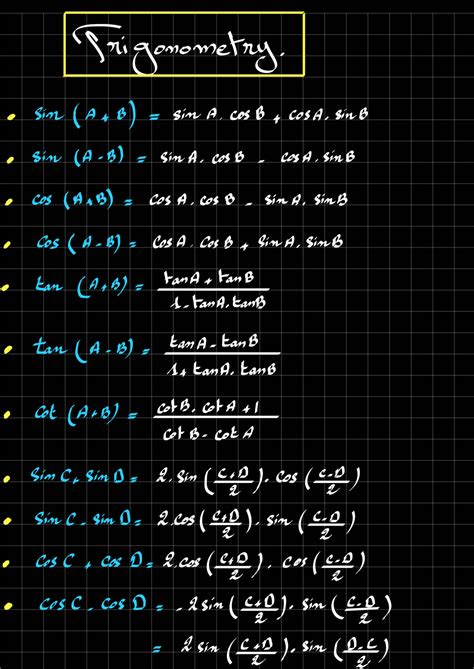 Trigonometry.
• Sin (A + B) = sin A. cos B + cos A. sin B
• Sin (A - B) = sin A. cos B - cos A. sin B
• cos (A+B) = cos A. cos B - sin A. sin B
• cos (A - B) = cos A. cos B + sin A. sin B
• tan (A+B) = (tan A + tan B) / (1 - tan A. tan B)
• tan (A - B) = (tan A - tan B) / (1 + tan A. tan B)
• cot (A+B) = (cot B. cot A + 1) / (cot B - cot A)
• Sin C + Sin D = 2. Sin ((C+D)/2). cos ((C-D)/2)
• Sin C - Sin D = 2. cos ((C+D)/2). sin ((C-D)/2)
• Cos C + cos D = 2. cos ((C+D)/2). cos ((C-D)/2)
• Cos C - cos D = - 2 sin ((C+D)/2). sin ((C-D)/2)
= 2 sin ((C+D)/2). sin ((D-C)/2)